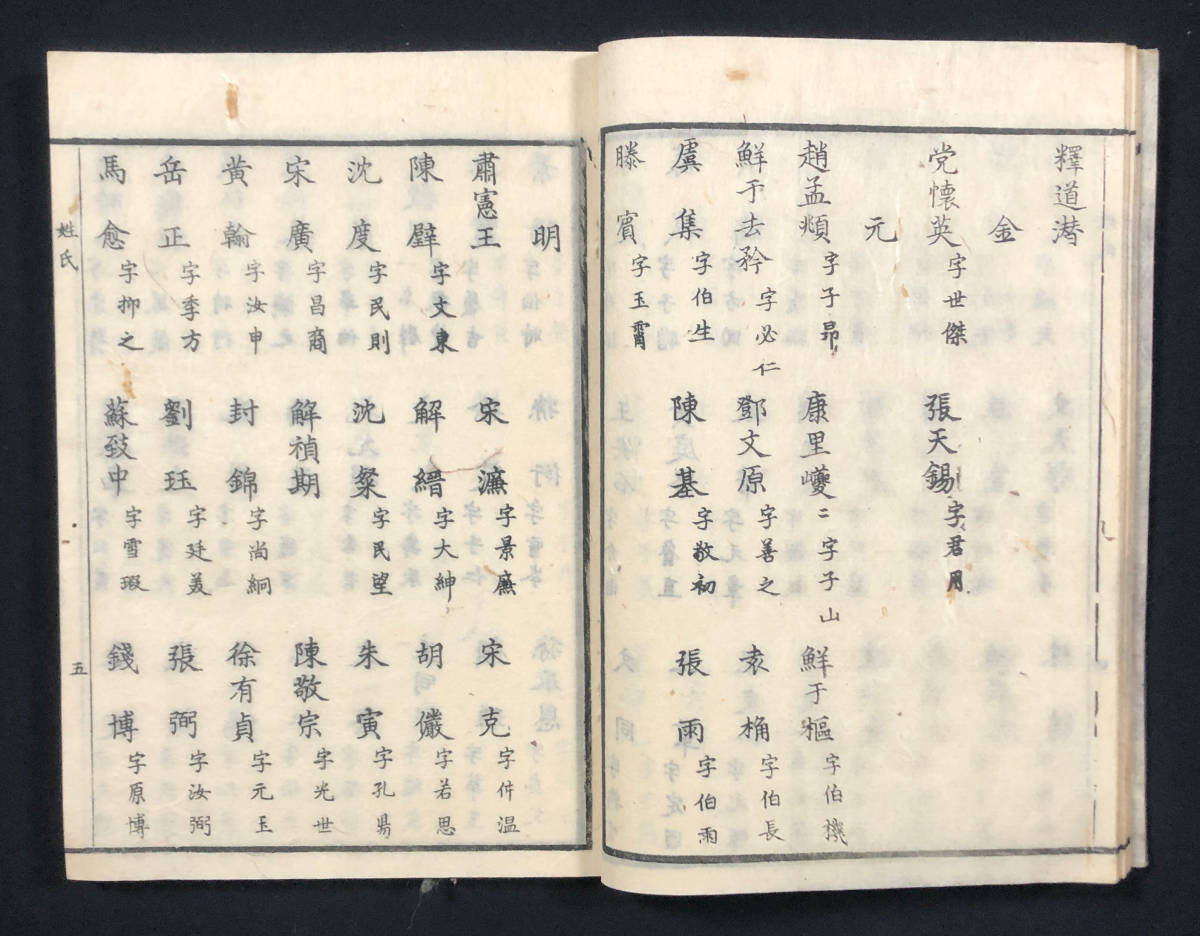 釋道潛
金
党懷英 字世傑 張天錫 字君用
元
趙孟頫 字子昂 康里巙 〻字子山 鮮于樞 字伯機
鮮于去矜 字必仁 鄧文原 字善之 袁桷 字伯長
虞集 字伯生 陳基 字敬初 張雨 字伯雨
滕賓 字玉霄
明
肅憲王 宋濂 字景廉 宋克 字仲温
陳璧 字文東 解縉 字大紳 胡儼 字若思
沈度 字民則 沈粲 字民望 朱寅 字孔昜
宋廣 字昌裔 解禎期 陳敬宗 字光世
黄翰 字汝申 封錦 字尚絅 徐有貞 字元玉
岳正 字季方 劉珏 字廷美 張弼 字汝弼
馬愈 字抑之 蘇致中 字雪瑕 錢博 字原博
姓氏 五